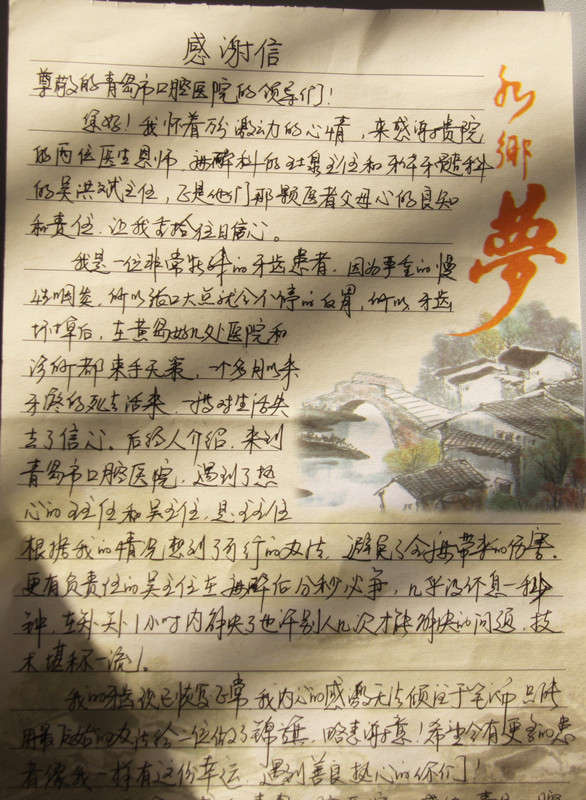 感谢信
尊敬的青岛市口腔医院的领导们!
您好!我怀着万分激动的心情,来感谢贵院
的两位医生恩师,麻醉科的王泉主任和牙体牙髓科
的吴洪斌主任,正是他们那颗医者父母心的良知
和责任,让我重拾往日信心。
我是一位非常特殊的牙齿患者,因为严重的慢
性咽炎,所以张口大点就会不停的反胃,所以,牙齿
坏掉后,在黄岛好几处医院和
诊所都束手无策,一个多月以来
牙疼的死去活来,一搭对生活失
去了信心。后经人介绍,来到
青岛市口腔医院,遇到了热
心的王主任和吴主任,是王主任
根据我的情况想到了可行的办法,避免了全麻带来的伤害,
更有负责任的吴主任在麻醉后分秒必争,几乎没休息一秒
钟,在补天补1小时内解决了也许别人几次才能解决的问题,技
术堪称一流!
我的牙齿现已恢复正常,我内心的感激无法倾注于笔端,只能
用最原始的办法给一位做了锦旗,略表谢意!希望会有更多的患
者像我一样有这份幸运,遇到善良热心的你们!
水乡
夢